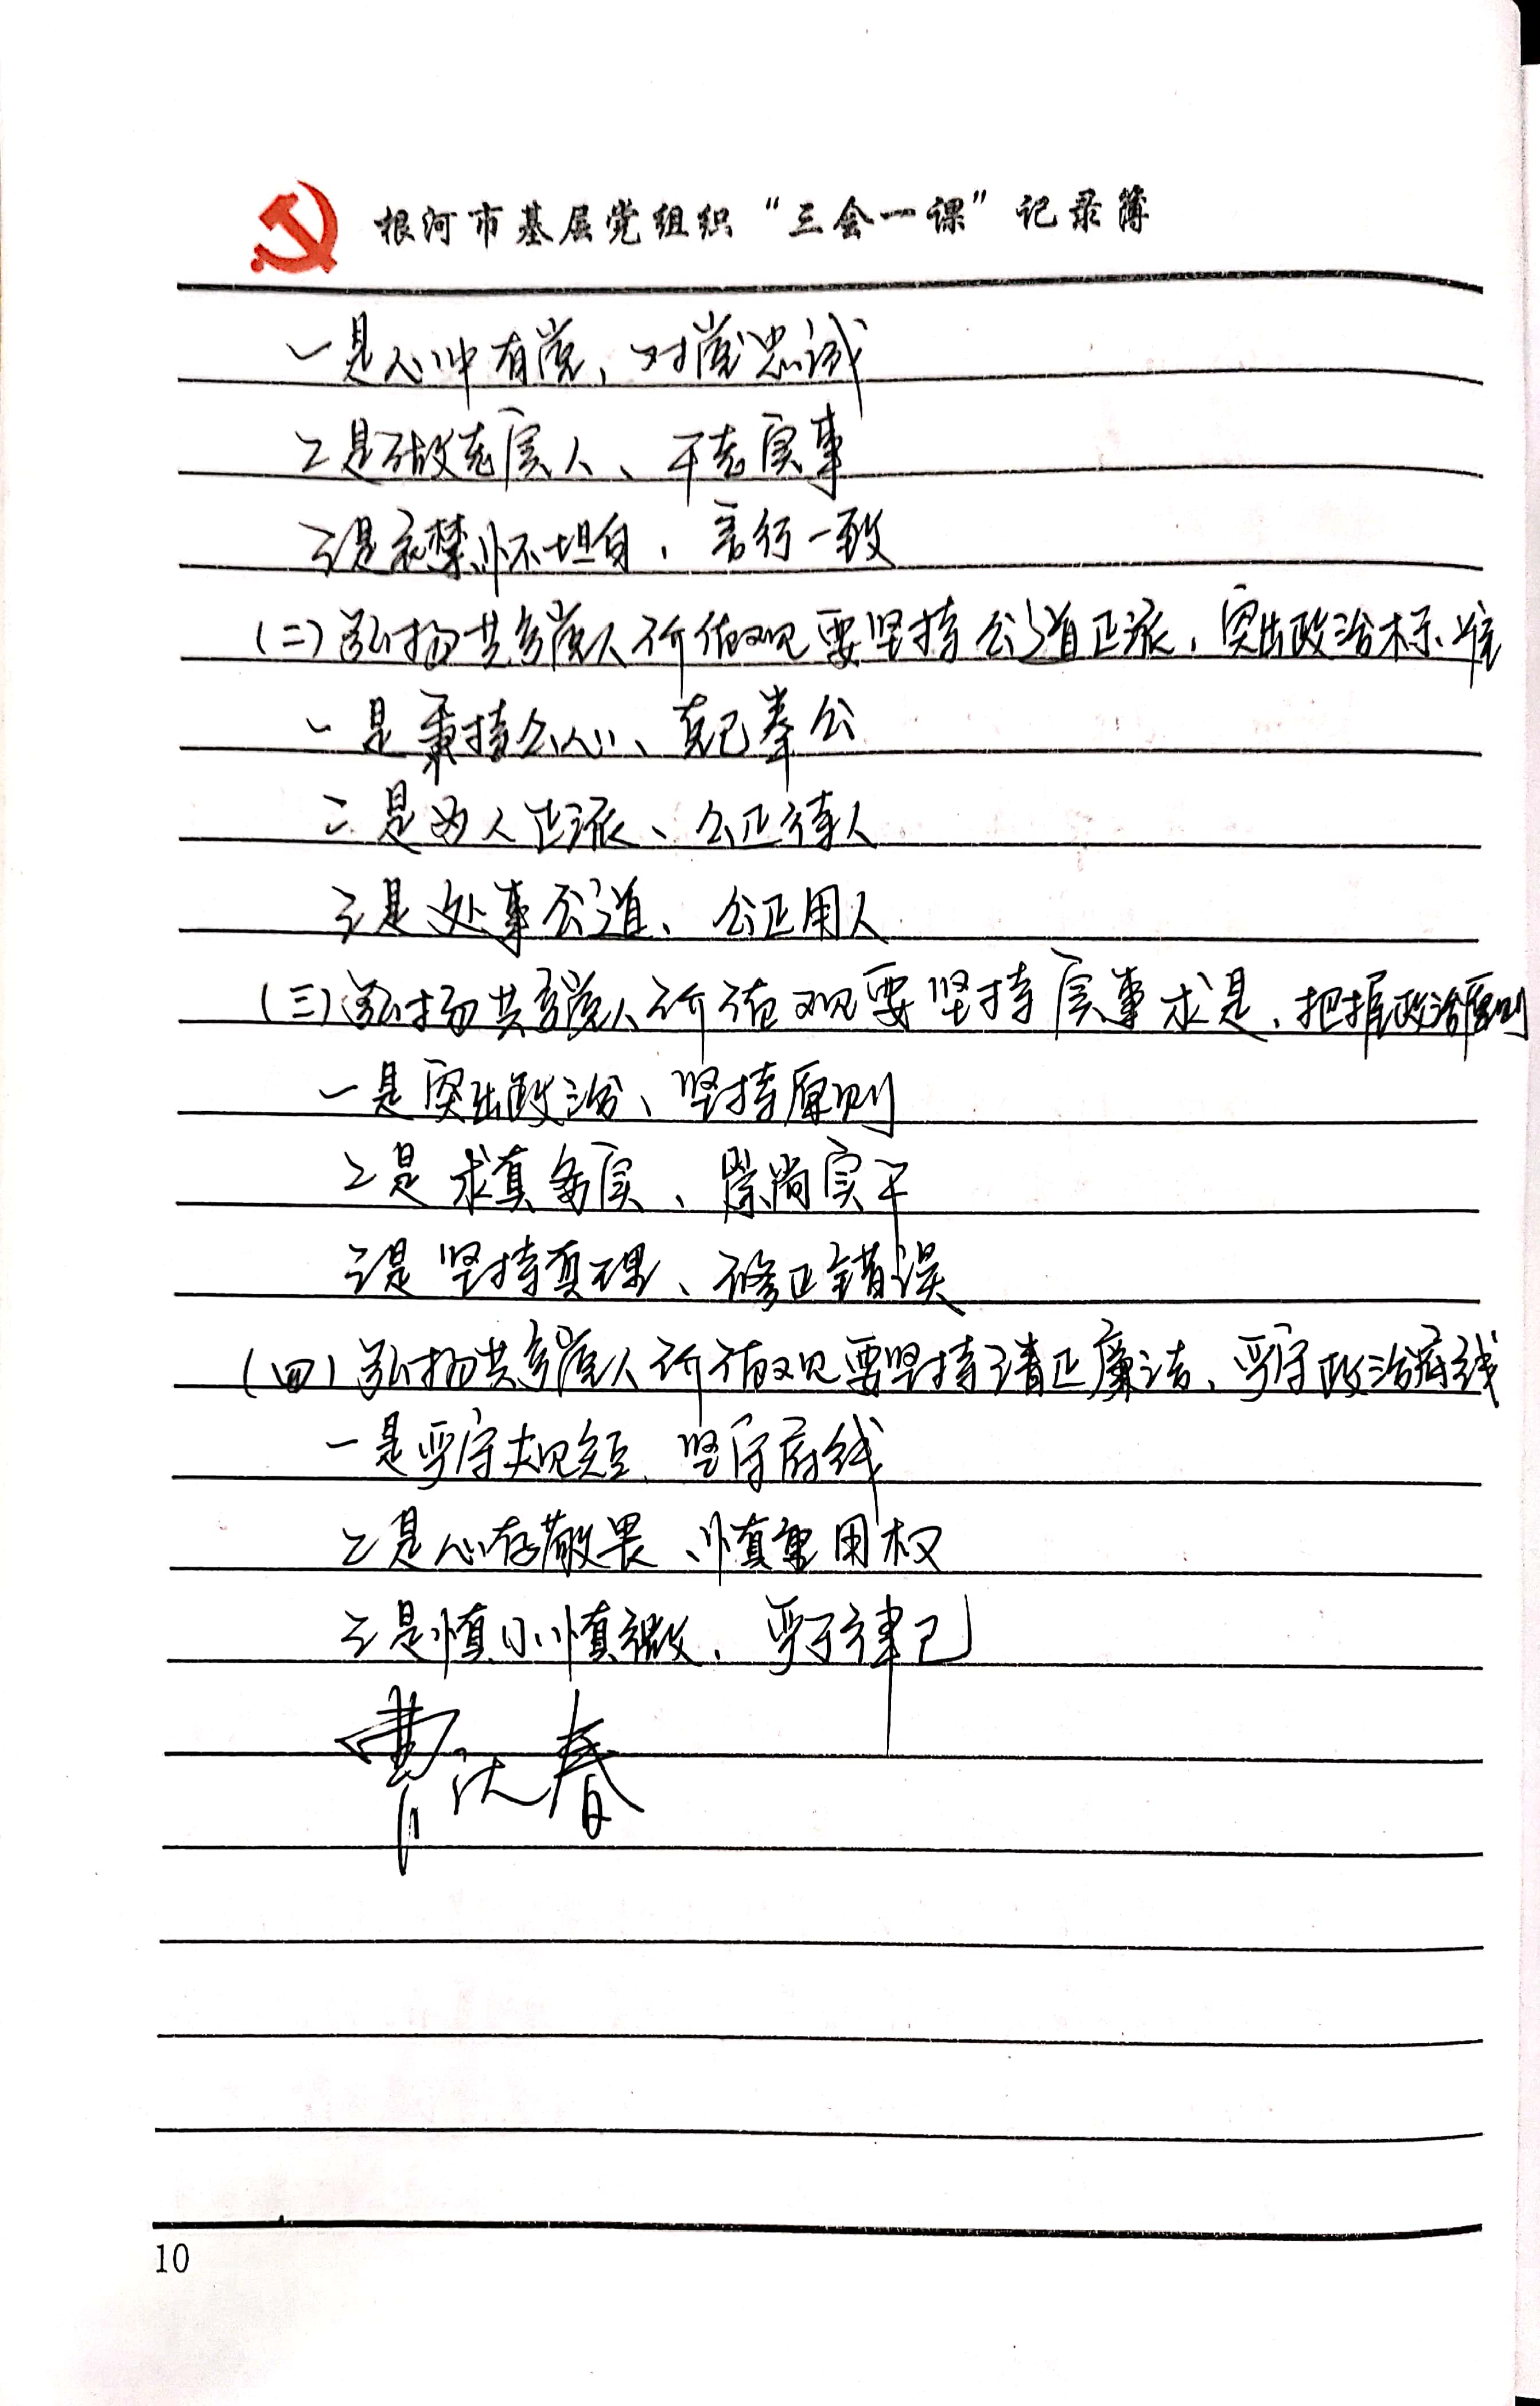 根河市基层党组织“三会一课”记录簿
一是心中有党、对党忠诚
二是做老实人、干老实事
三是襟怀坦白、言行一致
(二)弘扬共产党人价值观要坚持公道正派、突出政治标准
一是秉持公心、克己奉公
二是为人正派、公正待人
三是处事公道、公正用人
(三)弘扬共产党人价值观要坚持实事求是、把握政治原则
一是突出政治、坚持原则
二是求真务实、崇尚实干
三是坚持真理、修正错误
(四)弘扬共产党人价值观要坚持清正廉洁、严守政治底线
一是严守规矩、坚守底线
二是心存敬畏、慎重用权
三是慎小慎微、严于律己
曹 春
10